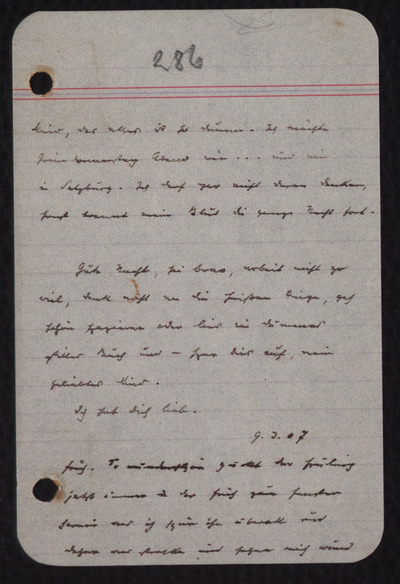 286
Kind, das alles ist so dumm. Ich möchte
Donnerstag Abend wär ... und wir
in Salzburg. Ich darf gar nicht daran denken,
sonst brennt mein Blut die ganze Nacht fort.
Gute Nacht, sei brav, arbeit nicht zu
viel, denk nicht an die Dinge, geh
schön spazieren oder lies ein dummes
stilles Buch und – spar Dich auf, mein
geliebtes Kind.
Ich hab Dich lieb.
9. 3. 07
früh. So wunderschön guckt der Frühling
jetzt immer in der früh zum Fenster
herein und ich spür ihn überall und
dehne und strecke und sehne mich